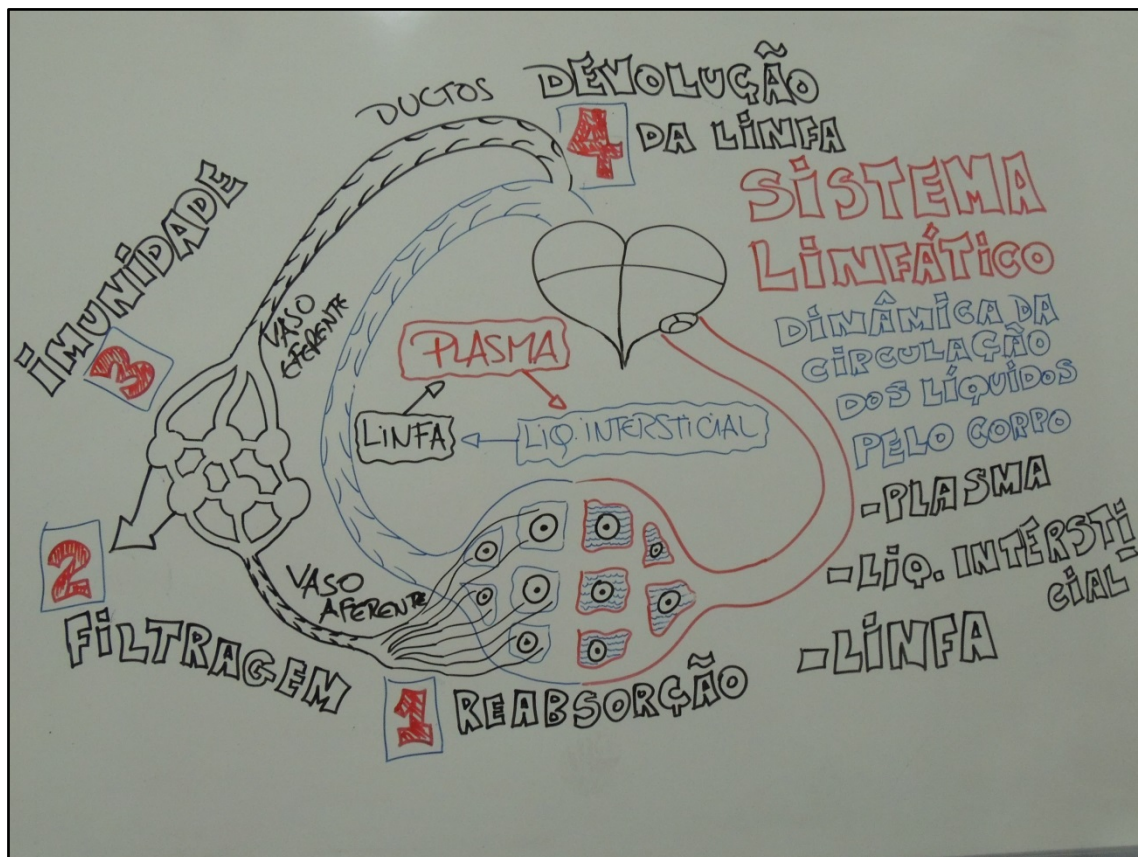 DUCTOS
DEVOLUÇÃO
4 DA LINFA
SISTEMA
LINFÁTICO
DINÂMICA DA
CIRCULAÇÃO
DOS LÍQUIDOS
PELO CORPO
-PLASMA
-LIQ. INTERSTI
CIAL
-LINFA
IMUNIDADE
3
VASO
EFERENTE
PLASMA
LINFA
LIQ. INTERSTICIAL
2
FILTRAGEM
VASO
AFERENTE
1 REABSORÇÃO